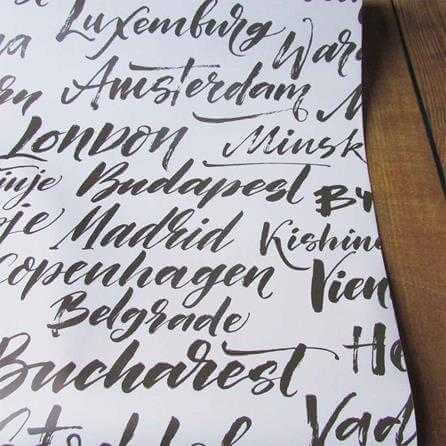 Luxemburg
War
Amsterdam
London Minsk
Budapest
Madrid Kishine
Copenhagen Vien
Belgrade
Bucharest He
Vad